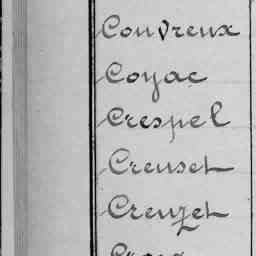 Couvreux
Coyac
Crespel
Creuset
Creuzet